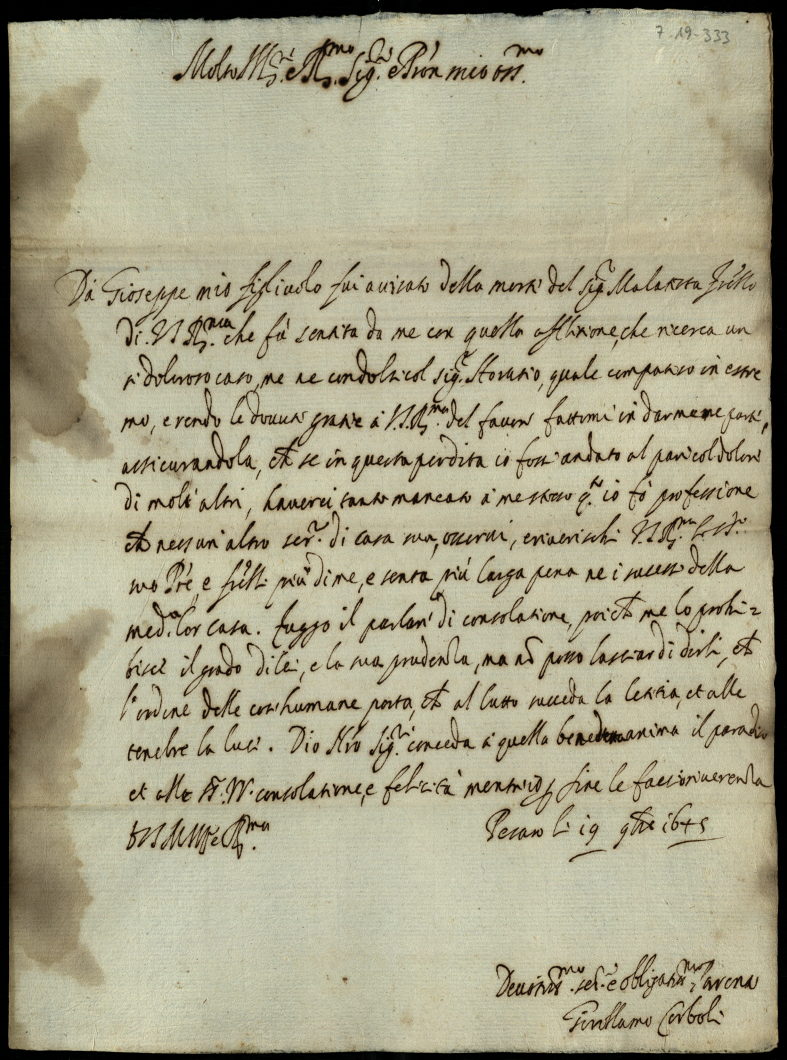 7-19-333
Molto Ill.re e R.mo Sig.r e Pron mio oss.mo
Da Gioseppe mio figliuolo fui avisato della morte del sig.r Malatesta frello
di V.S.R.ma che fù sentita da me con quella afflitione, che ricerca un
si doloroso caso, me ne condolsi col sig.r Horatio, quale compatisco in estre
mo, e rendo le dovute gratie à V.S.R.ma del favore fattomi in darmene parte,
assicurandola, che se in questa perdita io fossi andato al pari col dolore
di molti altri, haverei tanto mancato à me stesso q.to io fò professione
che nessun altro ser.re di casa sua, osservi, e riverischi V.S.R.ma
suo Pre, e frelli più di me, e senta più larga pena ne i successi della
med.a lor casa. fuggo il parlare di consolatione, poiche me lo prohi=
bisce il grado di lei, e la sua prudenza, ma nō posso lasciar di dirli, che
l'ordine delle cose humane porta, che al lutto succeda la letitia, et alle
tenebre la luce. Dio Nro Sig.re conceda à quella benedetta anima il paradiso
et alle VV. consolatione, e felicità mentre io per fine le faccio riverenza
Di V.S. M. Ill.re e R.ma Pesaro li 19 9bre 1645
Devotiss.mo ser.e e obligatiss.mo
Girollamo Corboli